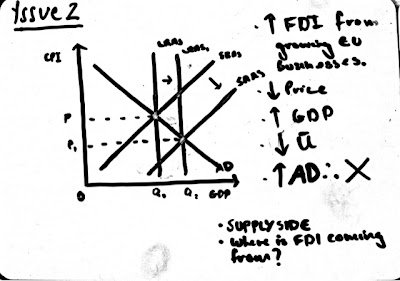 Issue 2
CPI
LRAS
LRAS₁
SRAS
SRAS
P
P₁
AD
0
Q₀
Q₁
GDP
· ↑ FDI from
growing EU
businesses.
↓ Price
↑ GDP
↓ Ū
↑ AD ∴ X
• SUPPLYSIDE
• Where is FDI coming
from?